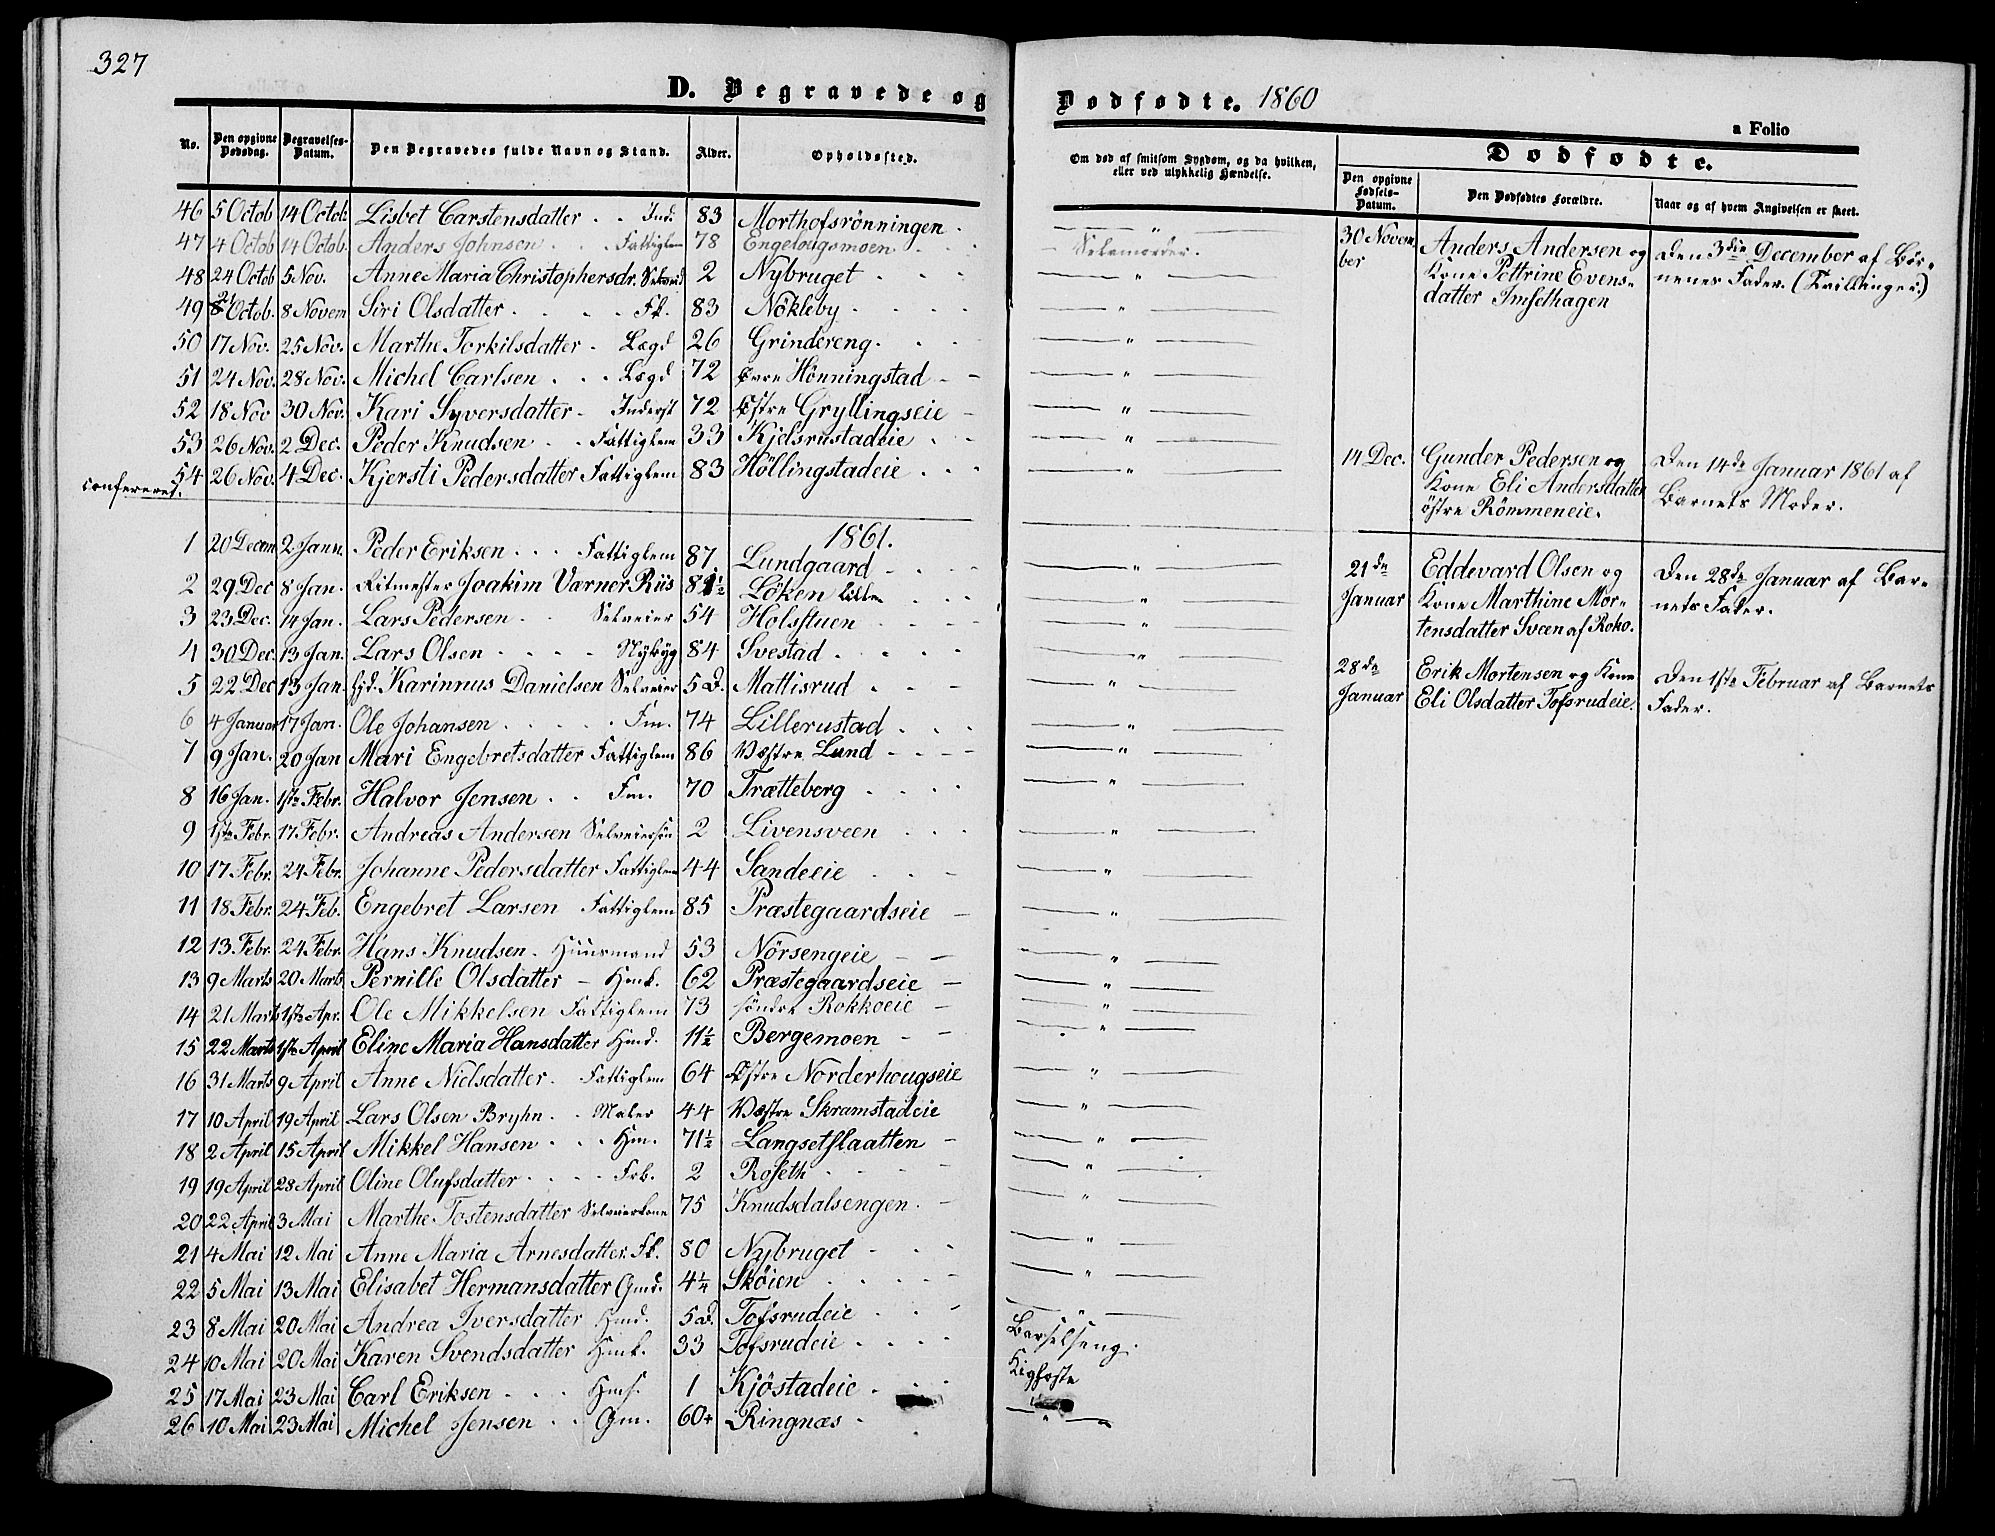 327
D. Begravede og Dødfødte. 1860
a Folio
No. Den opgivne Dødsdag. Begravelses-Datum. Den Begravedes fulde Navn og Stand. Alder. Opholdssted.
Om død af smitsom Sygdom, og da hvilken, eller ved ulykkelig Hændelse.
Dødfødte.
Den opgivne Fødsels-Datum. Den Dødfødtes Forældre. Naar og af hvem Angivelsen er skeet.
46 5 Octob 14 Octob: Lisbet Carstensdatter . . Ind: 83 Morthofsrönningen . — " —
47 4 Octob 14 Octob. Anders Johnson . . . Fattiglem 78 Engelougsmoen Selvmorder.
48 24 Octob 5 Nov. Anne Maria Christophersdr. 2 Nybruget . . . — " —
49 Octob. 8 Novem Siri Olsdatter . . . . . Fk. 83 Nökleby . . . . — " —
50 17 Nov. 25 Nov. Marthe Torkilsdatter . Lægd 26 Grindereng . . . — " —
51 24 Nov. 28 Nov. Michel Carlsen . . . Lægd 72 Övre Hönningstad — — " —
52 18 Nov 30 Nov. Kari Syversdatter . Inderst 72 Östre Gryllingseie — — " —
53 26 Nov. 2 Dec. Peder Knudsen . . Fattiglem 33 Kjelsrustadeie . . — " —
54 26 Nov. 4 Dec. Kjersti Pedersdatter Fattiglem 83 Höllingstadeie . . . — " —
confereret.
1861.
1 20 Decem 2 Jann. Peder Eriksen . . . Fattiglem 87 Lundgaard . . . . — " —
2 29 Dec 8 Jan. Ritmester Joakim Varner Riis 81½ Löken lille . . . — " —
3 23 Dec. 14 Jan. Lars Pedersen . . Selveier 54 Holsstuen . . . . — " —
4 30 Dec. 13 Jan. Lars Olsen . . . . Nybyg 84 Svestad . . . . — " —
5 22 Dec 13 Jan. hjd. Karinnus Danielsen Selveier 5 D. Mattisrud . . . — " —
6 4 Januar 17 Jan. Ole Johansen . . . . . Fm. 74 Lillerustad . . . — " —
7 9 Jan. 20 Jan Mari Engebretsdatter Fattiglem 86 Væstre Lund . . . — " —
8 16 Jan. 1ste Febr. Halvor Jensen . . Fm. 70 Trætteberg . . . . — " —
9 1ste Febr. 17 Febr. Andreas Andersen Selveiersön 2 Livensveen . . . — " —
10 17 Febr. 24 Febr. Johanne Pedersdatter Fattiglem 44 Sandeeie . . . — " —
11 18 Febr. 24 Feb. Engebret Larsen Fattiglem 85 Præstegaardseie — — " —
12 13. Febr. 24 Febr. Hans Knudsen . Huusmand 53 Nörsengeie — — — " —
13 9 Marts 20 Marts Pernille Olsdatter — Hmk. 62 Præstegaardseie — — " —
14 21 Marts 1ste Apr. Ole Mikkelsen Fattiglem 73 söndre Rokkoeie — — " —
15 22 Marts 1ste April Eline Maria Hansdatter Hmd. 11½ Bergemoen — — " —
16 31 Marts 9 April Anne Nielsdatter . Fattiglem 64 Östre Norderhougseie — " —
17 10 April 19 April Lars Olsen Bryhn . . Maler 44 Væstre Skramstadeie — " —
18 2 April 15 April Mikkel Hansen . . . Hm. 71½ Langsetslaatten — — " —
19 19 April 28 April Oline Olufsdatter . . . . Frb. 2 Roseth . . . . — " —
20 22 April 3 Mai Marthe Tostensdatter Selveierkone 75 Knudsdalsengen . — — " —
21 4 Mai 12 Mai Anne Maria Arnesdatter. Fk. 80 Nybruget . . . — " —
22 5 Mai 13 Mai Elisabet Hermansdatter Gmd. 4¼ Sköien . . . . . — " —
23 8 Mai 20 Mai Andrea Iversdatter Hmd. 5 D. Tofsrudeie . . . — " —
24 10 Mai 20 Mai Karen Svendsdatter Hmk. 33 Tofsrudeie . . . . Barselseng.
25 17 Mai 23 Mai Carl Eriksen . . . Hms. 1 Kjöstadeie . . . . Kighoste
26 10 Mai 23 Mai Michel Jensen . . Gm. 60 Ringnæs . — " —
30 Novem
ber
Anders Andersen og
Kone Pettrine Evens-
datter Imselhagen
Den 3die December af Bör-
nenes Fader. (Tvillinger.)
14 Dec.
Gunder Pedersen og
Kone Eli Andersdatter
östre Römmeneie.
Den 14de Januar 1861 af
Barnets Moder.
21de
Januar
Eddevard Olsen og
Kone Marthine Mor-
tensdatter Sveen af Roko.
Den 28de Januar af Bar-
nets Fader.
28de
Januar
Erik Mortensen og Kone
Eli Olsdatter Tofsrudeie.
Den 1ste Februar af Barnets
Fader.